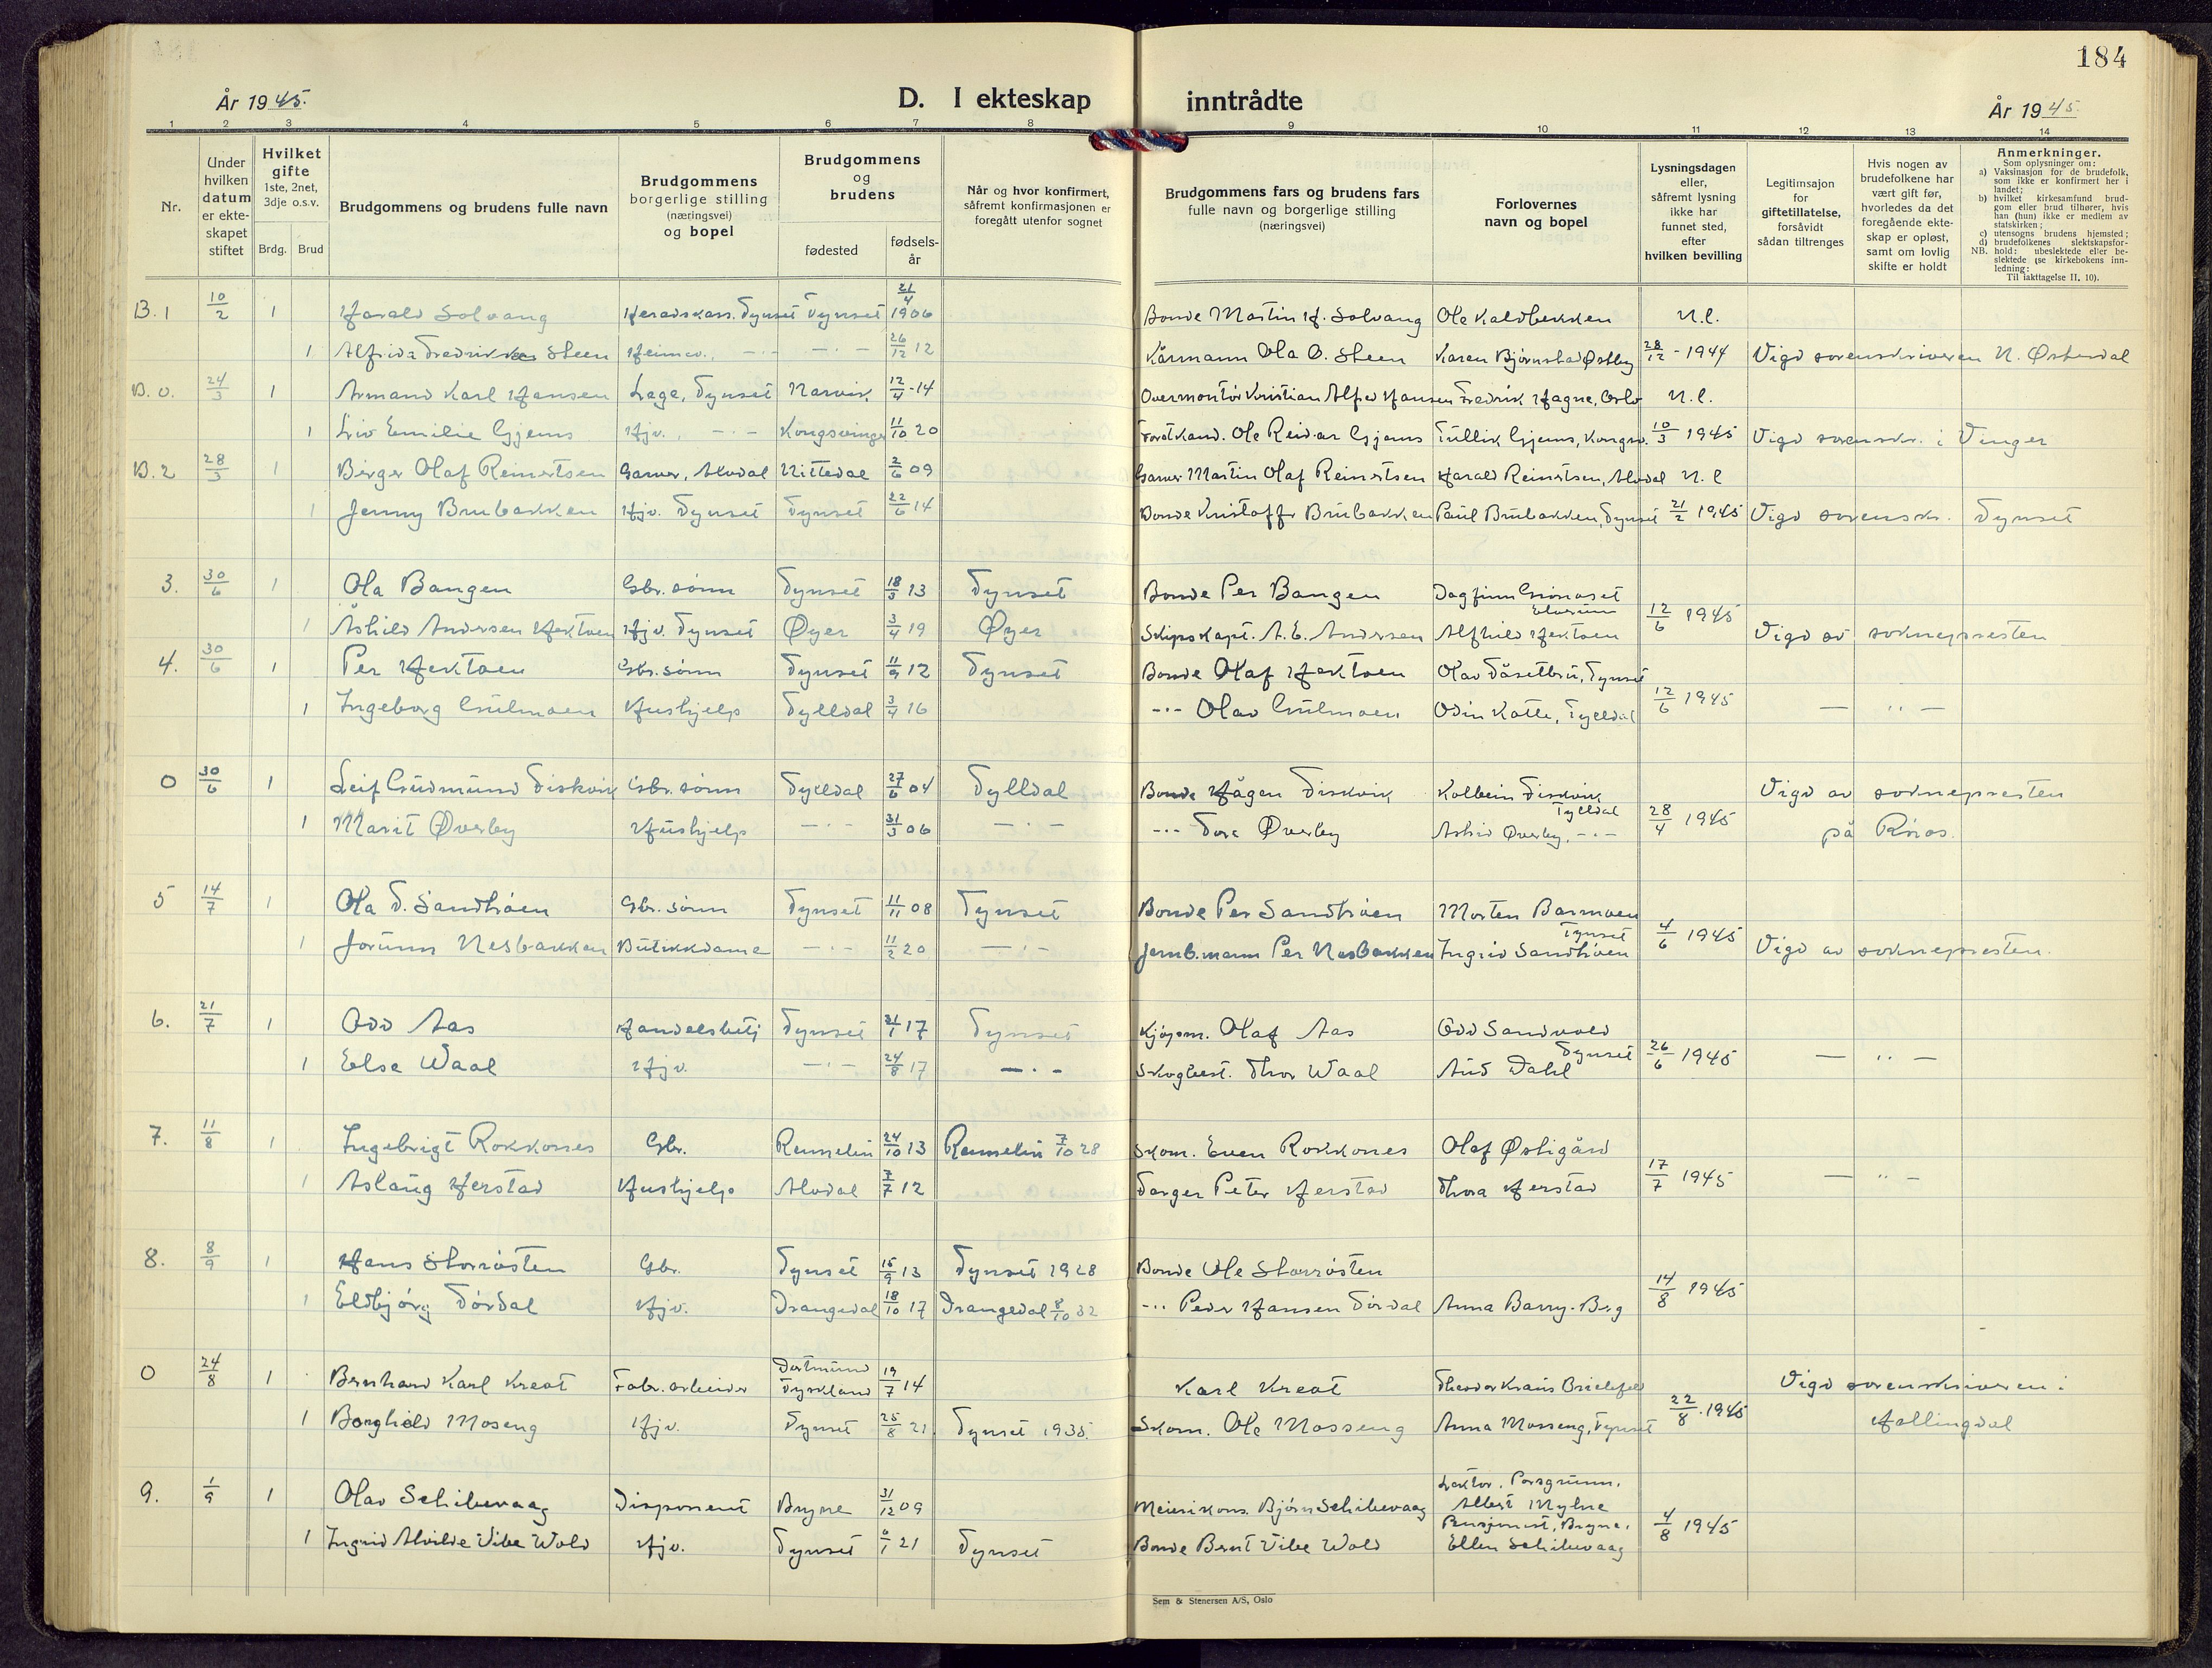 184
År 1945.
D. I ekteskap inntrådte
År 1945.
1 2 3 4 5 6 7 8 9 10 11 12 13 14
Nr.
Under hvilken datum er ekte-skapet stiftet
Hvilket gifte 1ste, 2net, 3dje o.s.v.
Brdg. Brud
Brudgommens og brudens fulle navn
Brudgommens borgerlige stilling (næringsvei) og bopel
Brudgommens og brudens
fødested
fødsels-år
Når og hvor konfirmert, såfremt konfirmasjonen er foregått utenfor sognet
Brudgommens fars og brudens fars fulle navn og borgerlige stilling (næringsvei)
Forlovernes navn og bopel
Lysningsdagen eller, såfremt lysning ikke har funnet sted, efter hvilken bevilling
Legitimsajon for giftetillatelse, forsåvidt sådan tiltrenges
Hvis nogen av brudefolkene har vært gift før, hvorledes da det foregående ekte-skap er opløst, samt om lovlig skifte er holdt
Anmerkninger.
Som oplysninger om:
a) Vaksinasjon for de brudefolk, som ikke er konfirmert her i landet;
b) hvilket kirkesamfund brud-gom eller brud tilhører, hvis han (hun) ikke er medlem av statskirken;
c) utensogns brudens hjemsted;
d) brudefolkenes slektskapsfor-hold: ubeslektede eller be-slektede (se kirkebokens inn-ledning:
NB.
Til iakttagelse II, 10).
B. 1 10/2 1 Harald Solvang Heradskass. Tynset Tynset 21/4 1906 Bonde Martin H. Solvang Ole Kaldbekken N.l.
1 Alfrida Fredrikke Steen Heimev., -·- -·- 26/12 12 Kårmann Ola O. Steen Karen Bjørnstad Østby 28/12 - 1944 Vigd sorenskriveren N. Østerdal
B. 0. 24/3 1 Armand Karl Hansen Lege, Tynset Narvik 12/4 -14 Overmontør Kristian Alfred Hansen Fredrik Hagne, Oslo N.l.
1 Liv Emilie Gjems Hjv., -·- Kongsvinger 11/10 20 Forstkand. Ole Reidar Gjems Tullik Gjems, Kongsv. 10/3 1945 Vigd sorenskr. i Vinger
B. 2 28/3 1 Birger Olaf Reinertsen Garver, Alvdal Nittedal 2/6 09 Garver Martin Olaf Reinertsen Harald Reinertsen, Alvdal N.l
1 Jenny Brubakken Hjv. Tynset Tynset 22/6 14 Bonde Kristoffer Brubakken Paul Brubakken, Tynset 21/2 1945 Vigd sorenskr. Tynset
3. 30/6 1 Ola Bangen Gbr. sønn Tynset 18/3 13 Tynset Bonde Per Bangen Dagfinn Grønoset
Elverum 12/6 1945
1 Åshild Andersen Hektoen Hjv. Tynset Øyer 3/4 19 Øyer Skipskapt. A. E. Andersen Alfhild Hektoen Vigd av soknepresten
4. 30/6 1 Per Hektoen Gbr. sønn Tynset 11/9 12 Tynset Bonde Olaf Hektoen Olav Tåsetbru, Tynset
12/6 1945
1 Ingeborg Gulmoen Hushjelp Tylldal 3/4 16 -·- Olav Gulmoen Odin Kolle, Tylldal — ·· —
0 30/6 1 Leif Gudmund Diskvik Gbr. sønn Tylldal 27/6 04 Tylldal Bonde Hågen Diskvik Kolbein Diskvik Vigd av soknepresten
Tylldal 28/4 1945
1 Marit Øverby Hushjelp -·- 31/3 06 -·- -·- Tore Øverby Astrid Øverby, -·- på Røros.
5 14/7 1 Ola T. Sandtrøen Gbr. sønn Tynset 11/11 08 Tynset Bonde Per Sandtrøen Morten Barmoen
Tynset 4/6 1945
1 Jorunn Nesbakken Butikkdame -·- 11/2 20 -·- Jernb.mann Per Nesbakken Ingrid Sandtrøen Vigd av soknepresten.
6. 21/7 1 Odd Aas Handelsbetj Tynset 21/1 17 Tynset Kjøpm. Olaf Aas Odd Sandvold
Tynset 26/6 1945 — ·· —
1 Else Waal Hjv. -·- 24/8 17 -·- Skogbest. Thor Waal Aud Dahl
7. 11/8 1 Ingebrigt Rokkones Gbr. Rennebu 24/10 13 Rennebu 7/10 28 Skom. Even Rokkones Olaf Østigård
17/7 1945 — ·· —
1 Aslaug Herstad Hushjelp Alvdal 7/7 12 Farger Peter Herstad Thora Herstad
8. 8/9 1 Hans Storrøsten Gbr. Tynset 15/9 13 Tynset 1928 Bonde Ole Storrøsten
14/8 1945
1 Eldbjørg Tørdal Hjv. Drangedal 18/10 17 Drangedal 8/10 32 -·- Peder Hansen Tørdal Anna Barry-Berg
0 24/8 1 Bernhard Karl Kreat Fabr.arbeider Dortmund Tyskland 19/7 14 Karl Kreat Theodor Kraus Brielefeld Vigd sorenskriveren i
22/8 1945
1 Borghild Moseng Hjv. Tynset 25/8 21 Tynset 1935. Skom. Ole Mosseng Anna Mosseng, Tynset Hallingdal
9. 1/9 1 Olav Schibevaag Disponent Bryne 31/12 09 Meierikons. Bjørn Schibevaag Lektor, Porsgrunn.
Albert Myhre
4/8 1945
1 Ingrid Alvilde Vibe Wold Hjv. Tynset 6/1 21 Tynset Bonde Bernt Vibe Wold Bryne.
Ellen Schibevaag
Sem & Stenersen A/S, Oslo